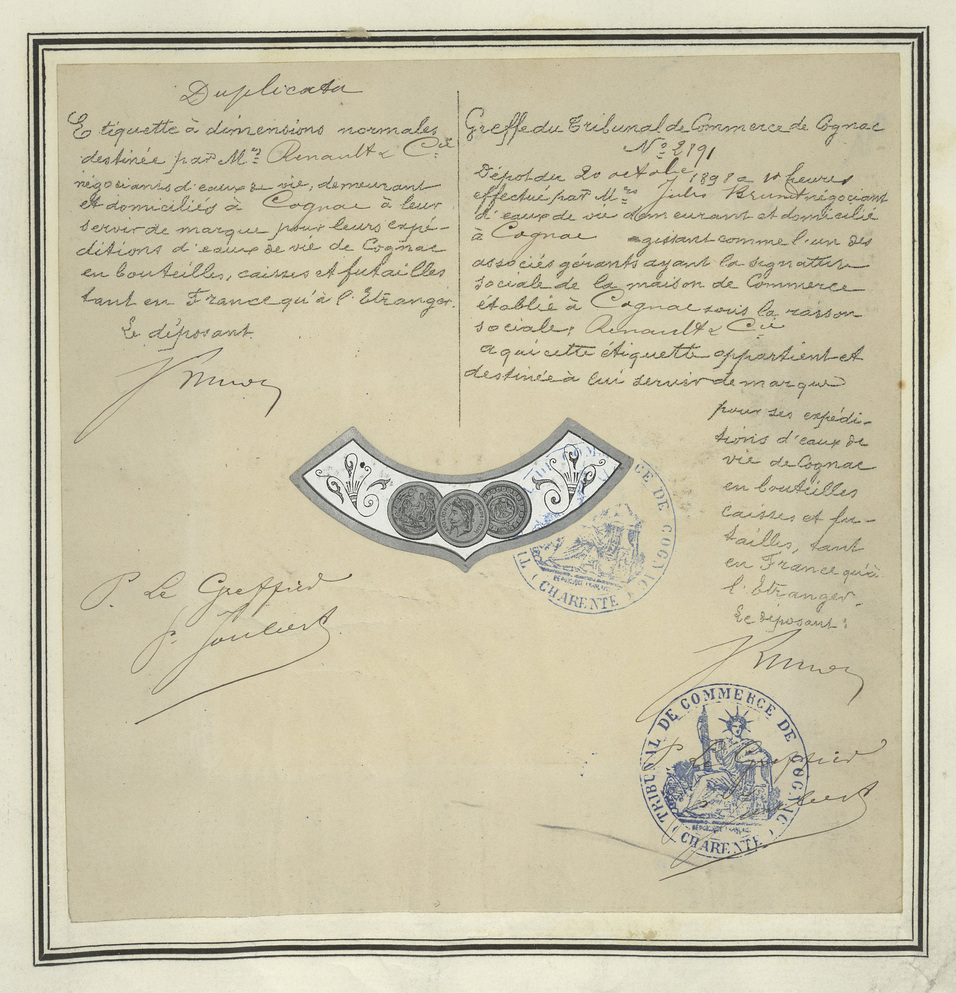 Duplicata
Etiquette à dimensions normales
destinée par M.rs Renault & Cie
négociants d'eaux de vie, demeurant
et domiciliés à Cognac à leur
servir de marque pour leurs expé-
ditions d'eaux de vie de Cognac
en bouteilles, caisses et futailles
tant en France qu'à l'Etranger.
Le déposant.
Greffe du Tribunal de Commerce de Cognac
No 2191
Dépot du 20 octobre 1898 à 10 heures
effectué par M. Jules Brunet négociant
d'eaux de vie demeurant et domicilié
à Cognac agissant comme l'un des
associés gérants ayant la signature
sociale de la maison de Commerce
établie à Cognac sous la raison
sociale, Renault & Cie
a qui cette étiquette appartient et
destinée à lui servir de marque
pour ses expédi-
tions d'eaux de
vie de Cognac
en bouteilles
caisses et fu-
tailles, tant
en France qu'à
l'Etranger.
Le déposant:
P. Le Greffier
P. Joubert
COMMERCE DE COGNAC
RÉPUBLIQUE FRANÇAISE
(CHARENTE)
TRIBUNAL DE COMMERCE DE COGNAC
RÉPUBLIQUE FRANÇAISE
(CHARENTE)
P. Le Greffier
P. Joubert